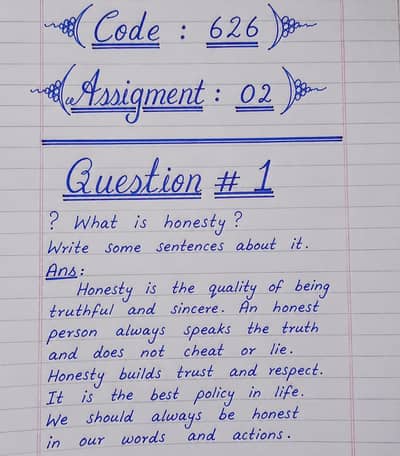 Code : 626
Assigment : 02
Question # 1
? What is honesty ?
Write some sentences about it.
Ans:
Honesty is the quality of being
truthful and sincere. An honest
person always speaks the truth
and does not cheat or lie.
Honesty builds trust and respect.
It is the best policy in life.
We should always be honest
in our words and actions.